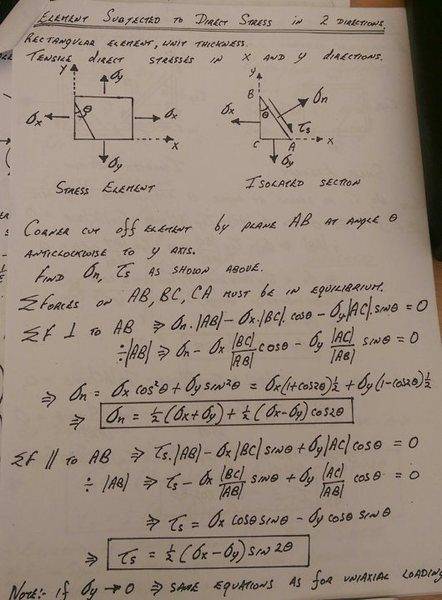 ELEMENT SUBJECTED TO DIRECT STRESS IN 2 DIRECTIONS
RECTANGULAR ELEMENT, UNIT THICKNESS.
TENSILE DIRECT STRESSES IN X AND Y DIRECTIONS.
Y σy θ σx σx x σy
Y B θ σn σx τs C A x σy
STRESS ELEMENT
ISOLATED SECTION
CORNER CUT OFF ELEMENT BY PLANE AB AT ANGLE θ
ANTICLOCKWISE TO Y AXIS.
FIND σn, τs AS SHOWN ABOVE.
ΣFORCES ON AB, BC, CA MUST BE IN EQUILIBRIUM.
ΣF ⊥ TO AB ⇒ σn.|AB| - σx.|BC|.cosθ - σy|AC|.sinθ = 0
÷|AB| ⇒ σn - σx |BC|/|AB| cosθ - σy |AC|/|AB| sinθ = 0
⇒ σn = σx cos²θ + σy sin²θ = σx(1+cos2θ)½ + σy(1-cos2θ)½
⇒ σn = ½(σx+σy) + ½(σx-σy)cos2θ
ΣF // TO AB ⇒ τs.|AB| - σx|BC|sinθ + σy|AC|cosθ = 0
÷ |AB| ⇒ τs - σx |BC|/|AB| sinθ + σy |AC|/|AB| cosθ = 0
⇒ τs = σx cosθ sinθ - σy cosθ sinθ
⇒ τs = ½(σx-σy) sin 2θ
NOTE:- if σy → 0 ⇒ SAME EQUATIONS AS FOR UNIAXIAL LOADING